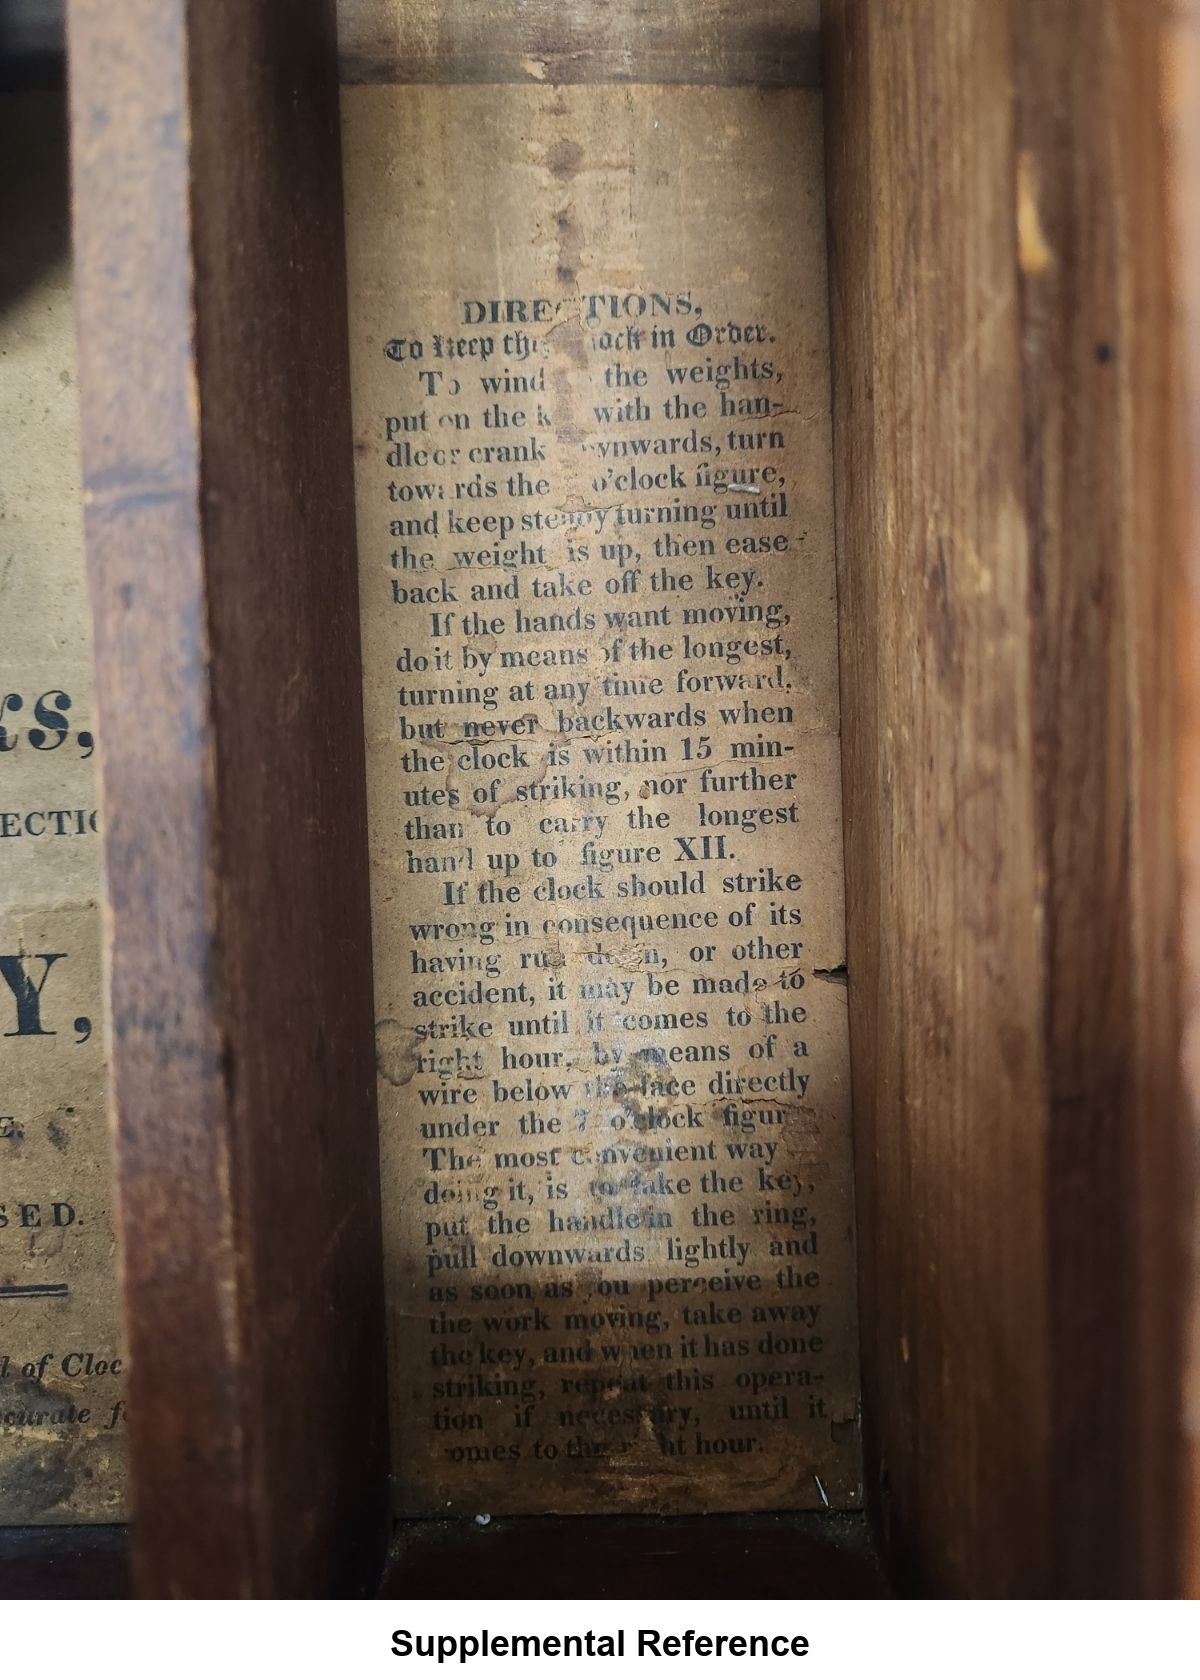 DIRECTIONS,
To keep in Order.
To wind the weights,
put on the with the han-
dle or crank turn
towards the o'clock figure,
and keep steady turning until
the weight is up, then ease
back and take off the key.
If the hands want moving,
do it by means of the longest,
turning at any time forward,
but never backwards when
the clock is within 15 min-
utes of striking, nor further
than to carry the longest
hand up to figure XII.
If the clock should strike
wrong in consequence of its
having run down, or other
accident, it may be made to
strike until it comes to the
right hour, by means of a
wire below the face directly
under the 7 o'clock
The most convenient way
doing it, is to take the key,
put the handle in the ring,
pull downwards lightly and
as soon as you perceive the
the work moving, take away
the key, and when it has done
striking, repeat this opera-
tion if necessary, until it
to the hour.
ks,
ECTI
Y,
E.
SED.
of Cloc
curate f
Supplemental Reference